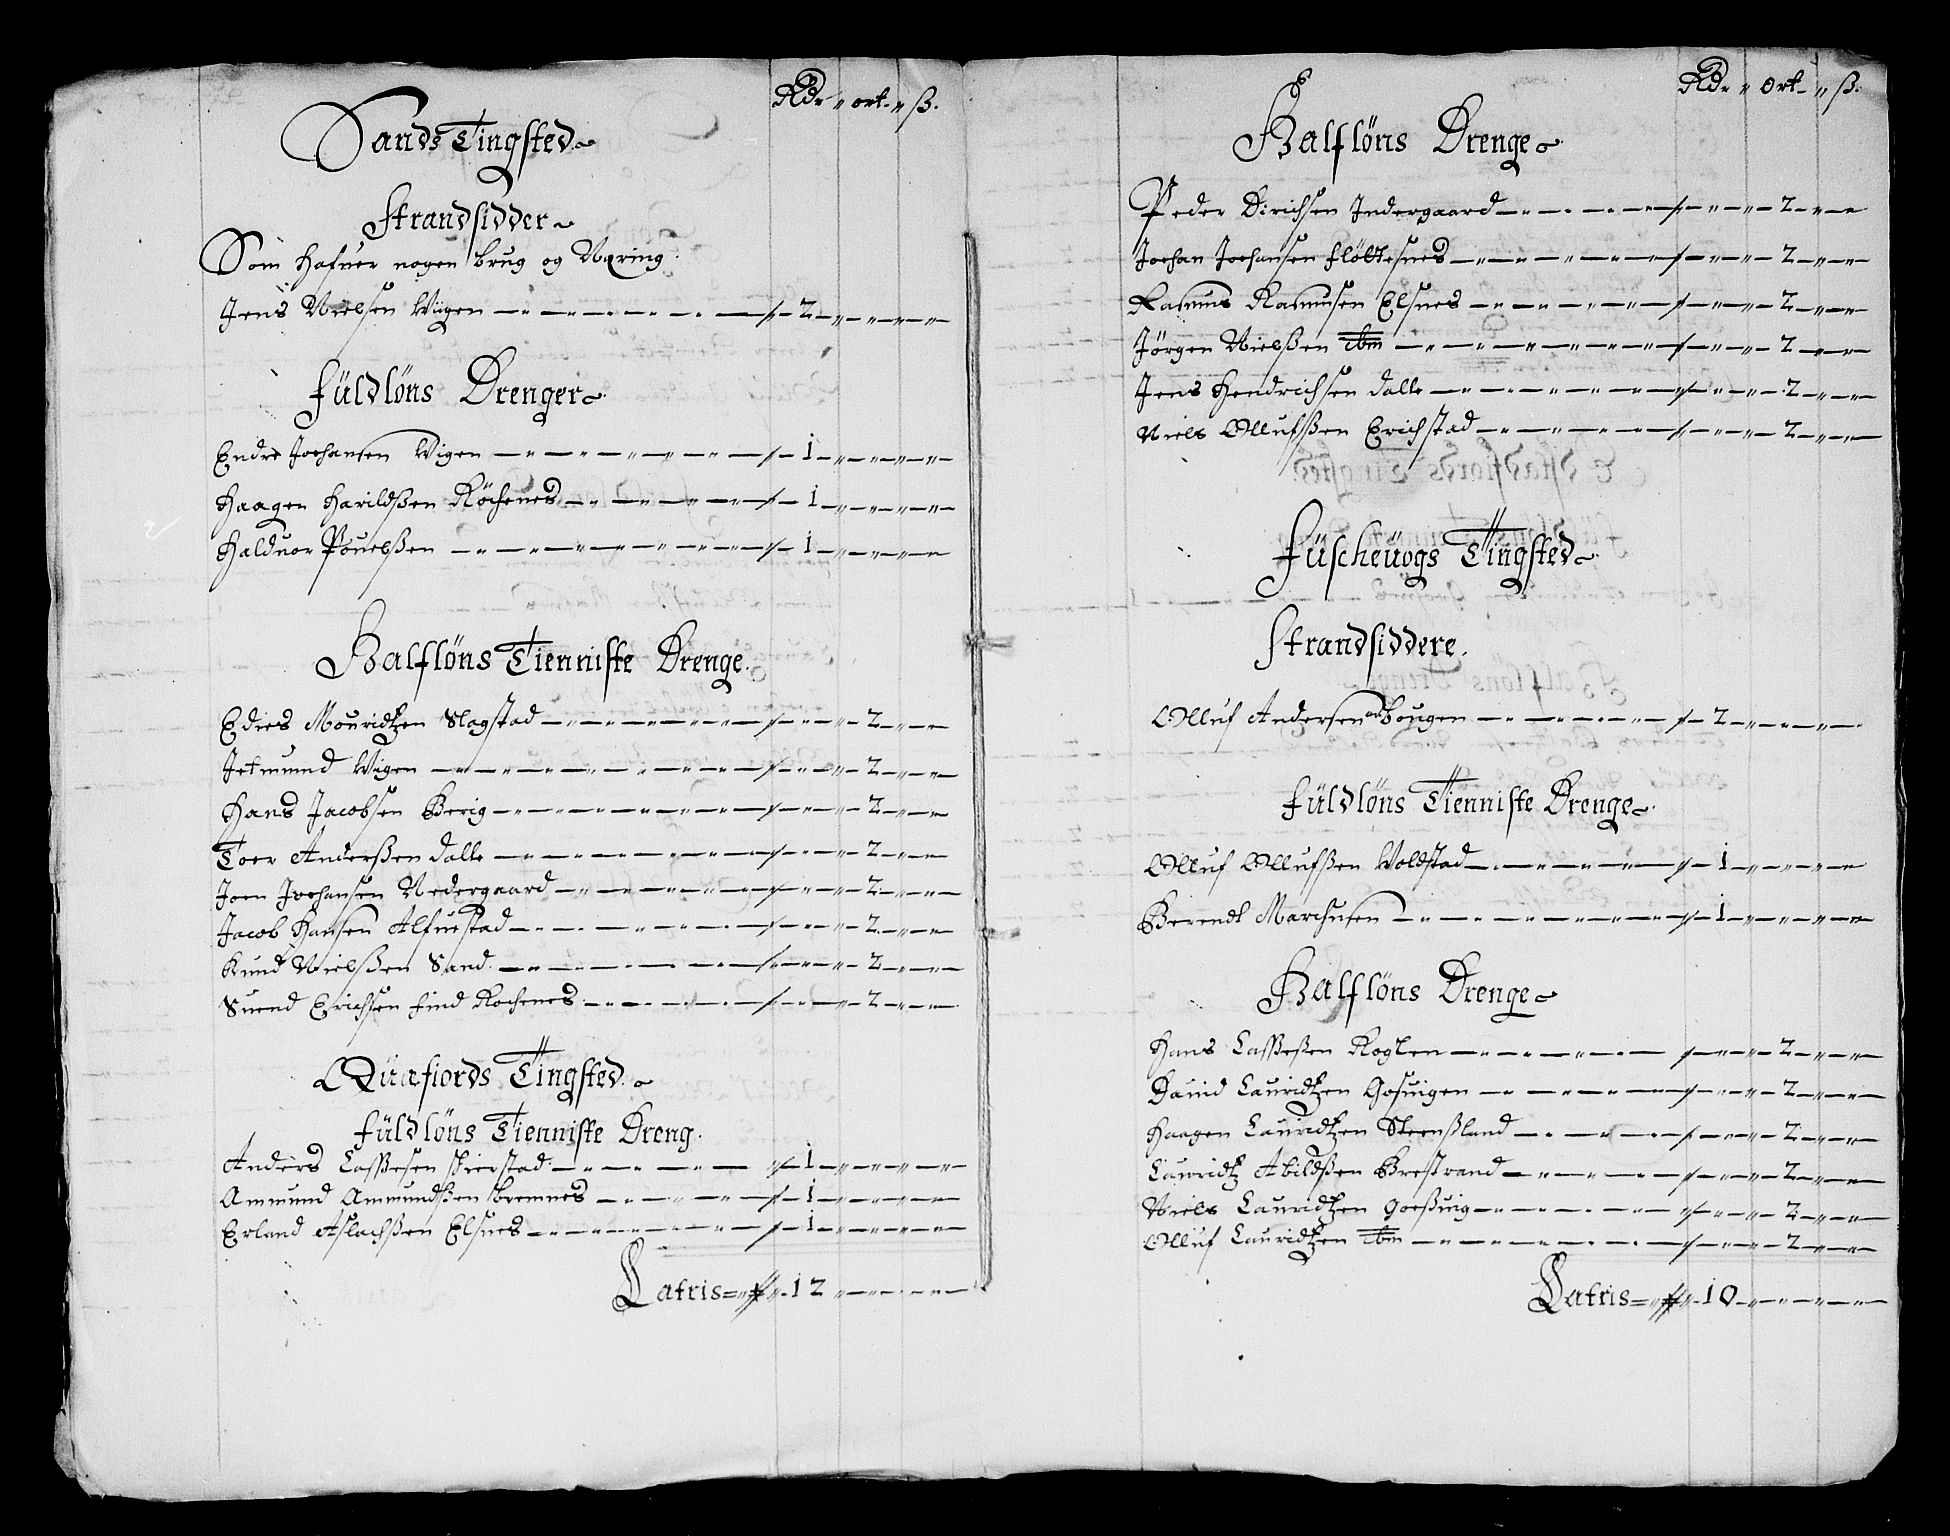 Rdr " ort " ß.
Sands Tingsted
Strandsidder
Som Hafuer nogen brug og Næring
Jens Nielsen Wiigen - 2
Füldlöns Drenger
Endre Joehansen Wigen - 1
Haagen Harildßen Röchenes - 1
Halduor Pouelßen - 1
Halflöns Tienniste Drenge.
Edies Mouridtzen Slagstad - 2
Jetmund Wigen - 2
Hans Jacobsen Berig - 2
Toer Anderßen dalle - 2
Joen Joehansen Nedergaard - 2
Jacob Hansen Alfuestad - 2
Knud Nielßen Sand - 2
Suend Erichsen find Rochenes - 2
Quafiords Tingsted.
Füldlöns Tienniste Dreng.
Anders Laßesen skierstad - 1
Ammund Ammundsen bremnes - 1
Erland Aslachßen Elsnes - 1
Latris = 12
Rdr " Ort " ß.
Halflöns Drenge
Peder Dirichsen Indergaard - 2
Joehan Joehansen flöttesnes - 2
Rasmus Rasmusen Elsnes - 2
Jörgen Nielßen ibm - 2
Jens Hendrichsen dalle - 2
Niels Ollufßen Erichstad - 2
Füscheuogs Tingsted
Strandsiddere.
Olluf Andersen bougen - 2
Füldlöns Tienniste Drenge
Olluf Ollufßen Voldstad - 1
Berendt Marchusen - 1
Halflöns Drenge
Hans Laßeßen Roglen - 2
Dauid Lauridtzen Gosuigen - 2
Haagen Lauridtzen Steenßland - 2
Lauridtz Abildßen Brestrand - 2
Niels Lauridtzen Goeßuig - 2
Olluf Lauridtzen ibm - 2
Latris = 10